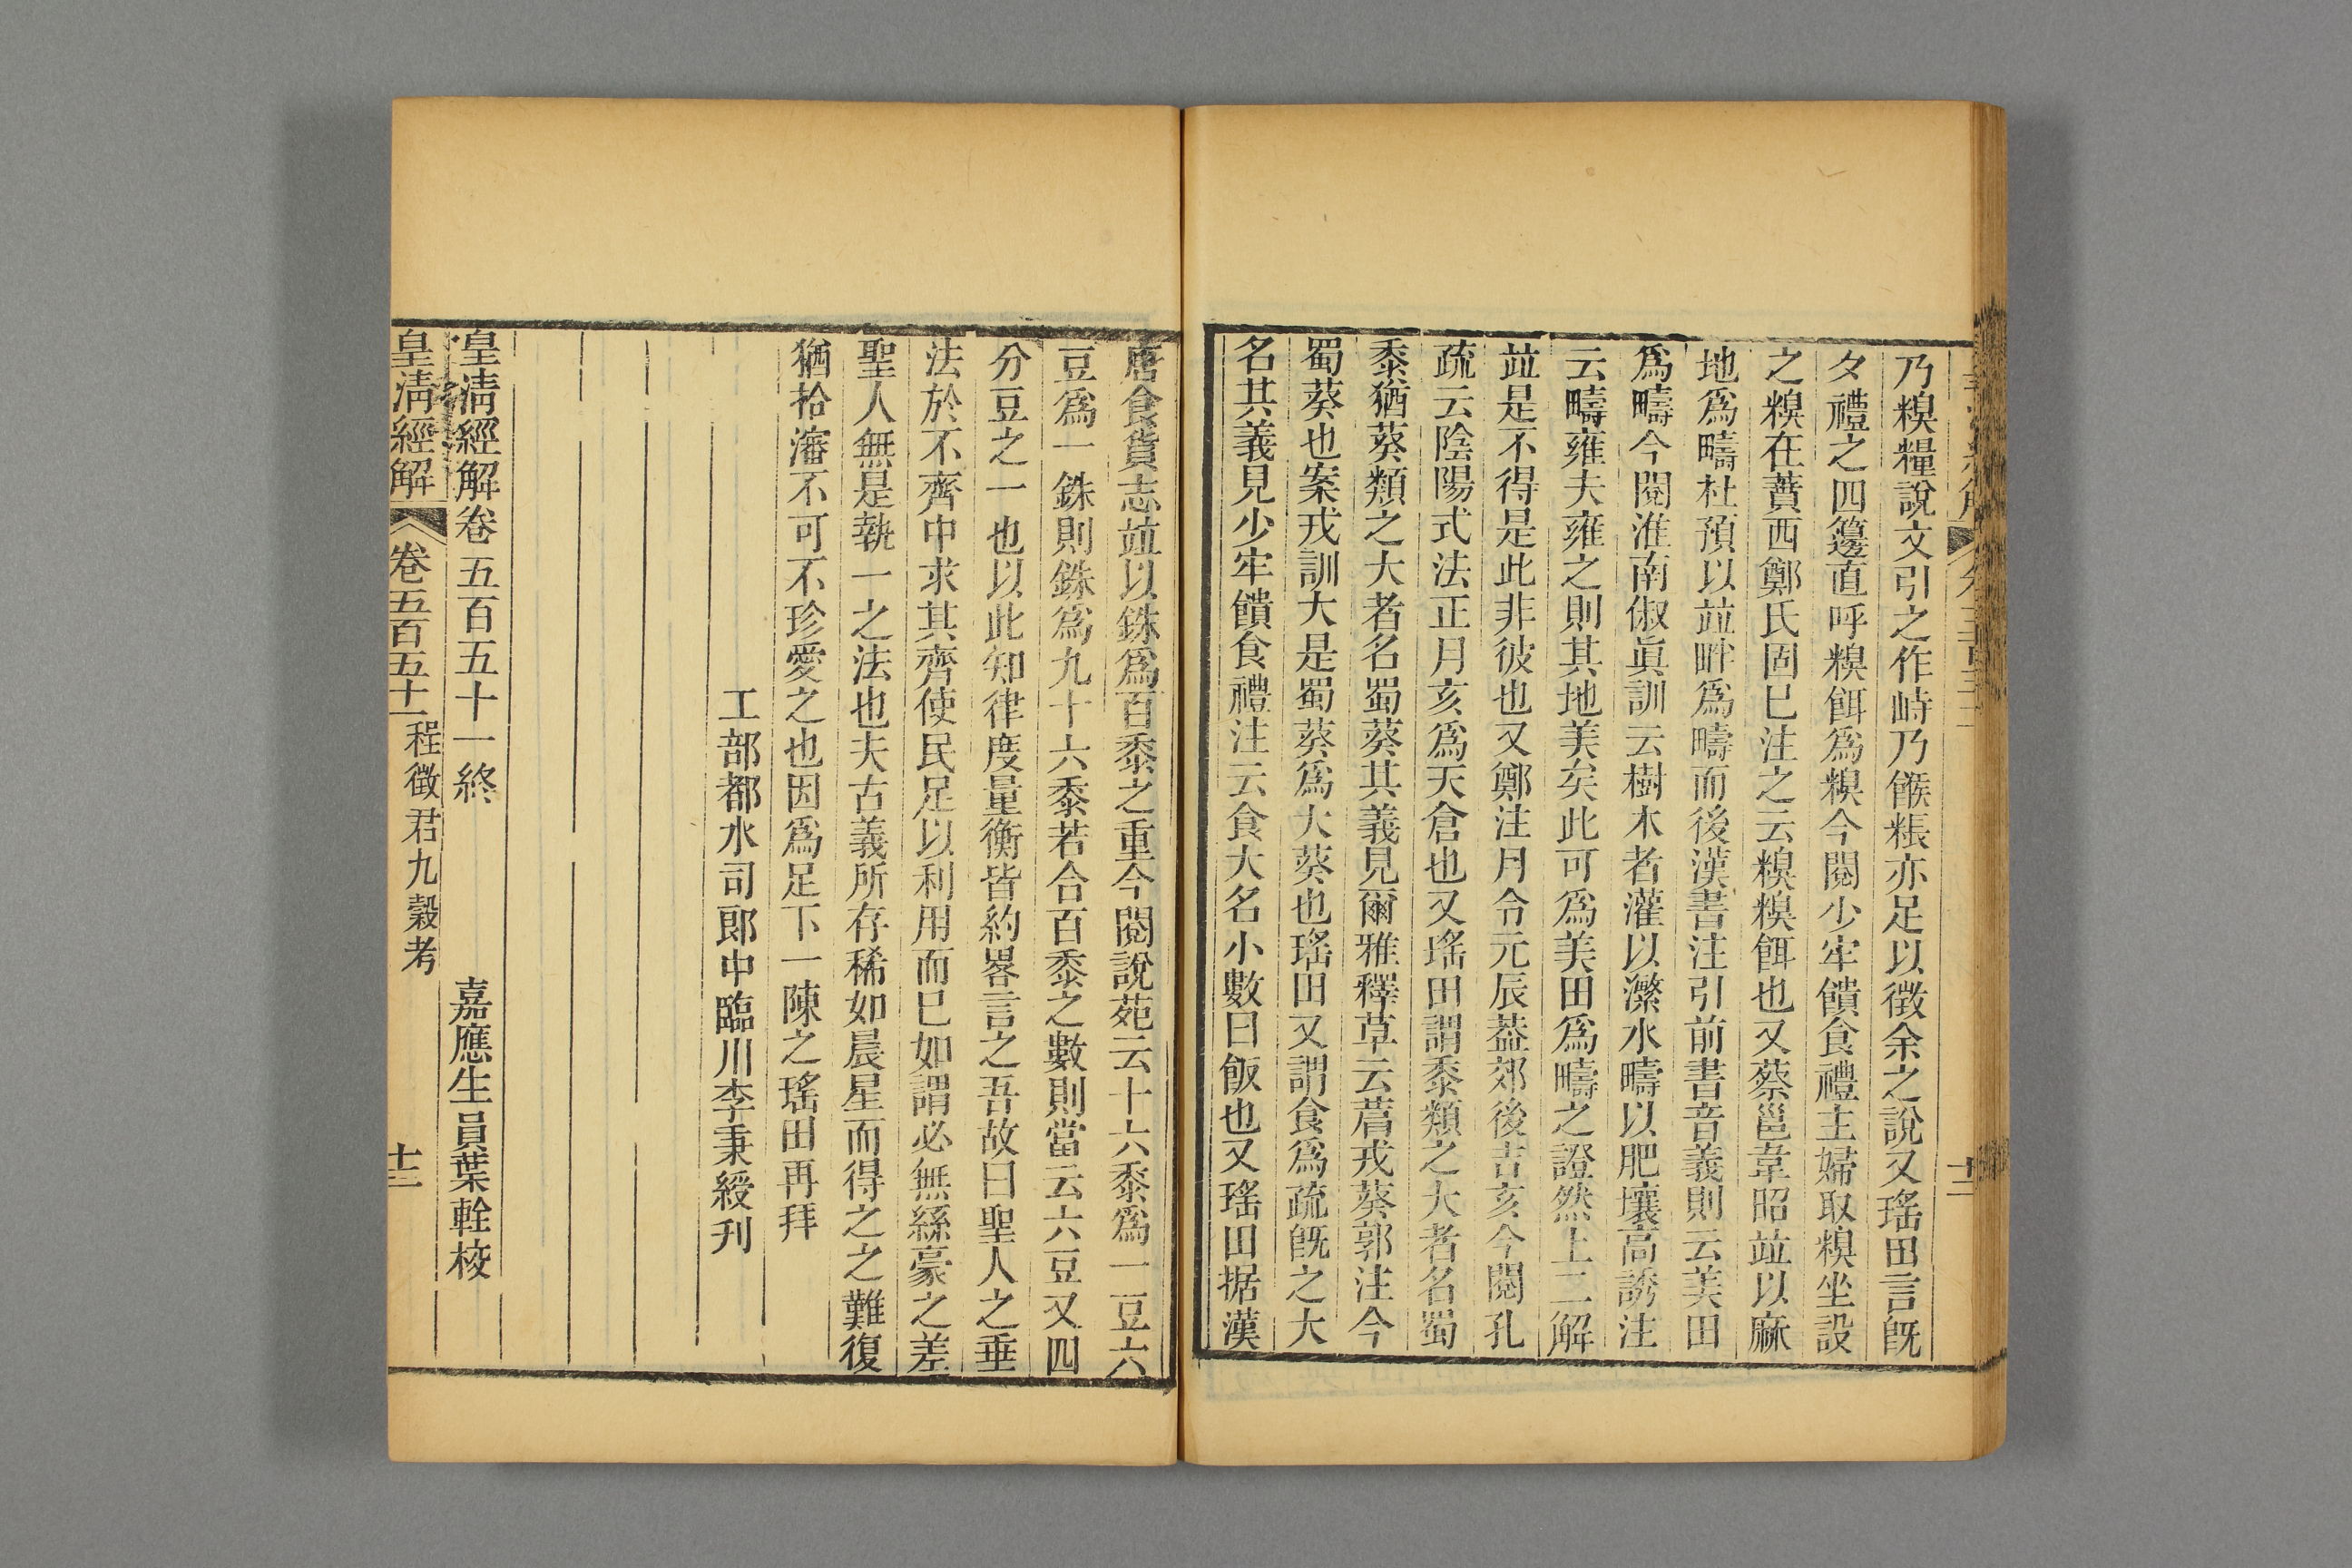 乃糗糧說文引之作峙乃餱粻亦足以徵余之說又瑤田言旣
夕禮之四籩直呼糗餌爲糗今閱少牢饋食禮主婦取糗坐設
之糗在蕡西鄭氏固巳注之云糗糗餌也又蔡邕韋昭竝以麻
地爲疇杜預以竝畔爲疇而後漢書注引前書音義則云美田
爲疇今閱淮南俶眞訓云樹木者灌以瀿水疇以肥壤高誘注
云疇雍夫雍之則其地美矣此可爲美田爲疇之證然上二解
竝是不得是此非彼也又鄭注月令元辰葢郊後吉亥今閱孔
疏云陰陽式法正月亥爲天倉也又瑤田謂黍類之大者名蜀
黍猶葵類之大者名蜀葵其義見爾雅釋草云菺戎葵郭注今
蜀葵也案戎訓大是蜀葵爲大葵也瑤田又謂食爲疏旣之大
名其義見少牢饋食禮注云食大名小數曰飯也又瑤田据漢
唐食貨志竝以銖爲百黍之重今閱說苑云十六黍爲一豆六
豆爲一銖則銖爲九十六黍若合百黍之數則當云六豆又四
分豆之一也以此知律度量衡皆約畧言之吾故曰聖人之垂
法於不齊中求其齊使民足以利用而巳如謂必無絲豪之差
聖人無是執一之法也夫古義所存稀如晨星而得之之難復
猶拾瀋不可不珍愛之也因爲足下一陳之瑤田再拜
工部都水司郎中臨川李秉綬刋
皇淸經解卷五百五十一終
嘉應生員葉輇校
皇淸經解 卷五百五十一 程徵君九穀考 十三